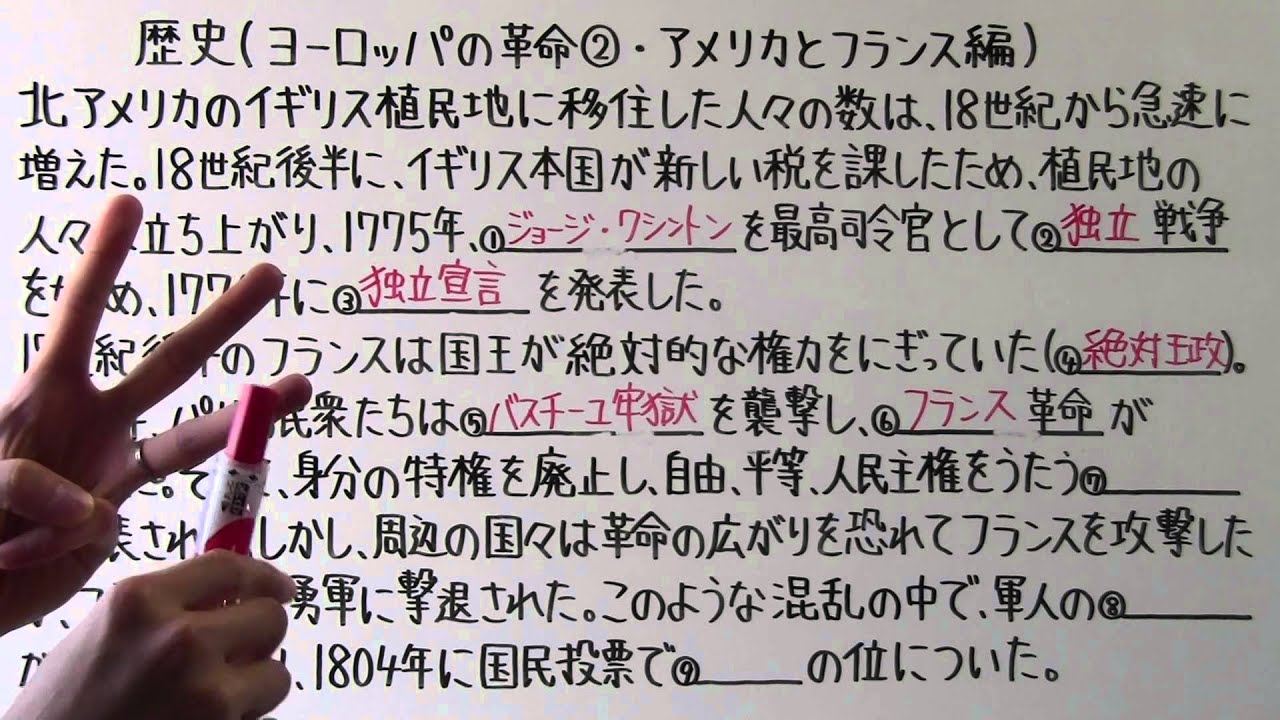 歴史(ヨーロッパの革命②・アメリカとフランス編)
北アメリカのイギリス植民地に移住した人々の数は、18世紀から急速に
増えた。18世紀後半に、イギリス本国が新しい税を課したため、植民地の
人々 立ち上がり、1775年、①ジョージ・ワシントンを最高司令官として②独立戦争
を め、177 年に③独立宣言を発表した。
1 紀 のフランスは国王が絶対的な権力をにぎっていた(④絶対王政)。
民衆たちは⑤バスチーユ牢獄を襲撃し、⑥フランス革命が
た。 、身分の特権を廃止し、自由、平等、人民主権をうたう⑦
しかし、周辺の国々は革命の広がりを恐れてフランスを攻撃した
勇軍に撃退された。このような混乱の中で、軍人の⑧
が 、1804年に国民投票で⑨ の位についた。